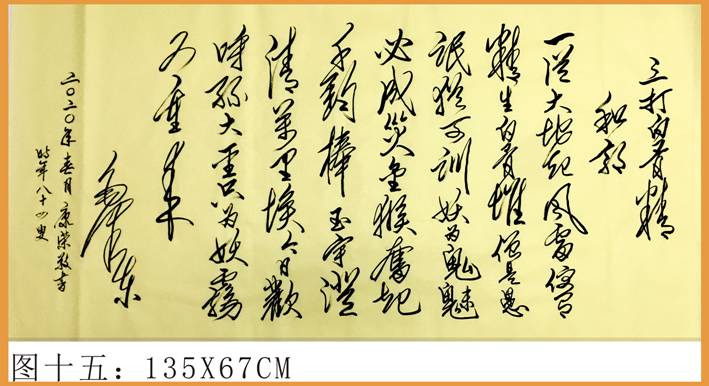 三打白骨精
和郭
一從大地起风雷便有
精生白骨堆僧是愚
氓犹可训妖为鬼魅
必成災金猴奮起
千鈞棒玉宇澄
清萬里埃今日歡
呼孫大聖只为妖霧
又重来
毛泽东
二〇二〇年春月康荣敬書
时年八十四叟
图十五：135X67CM